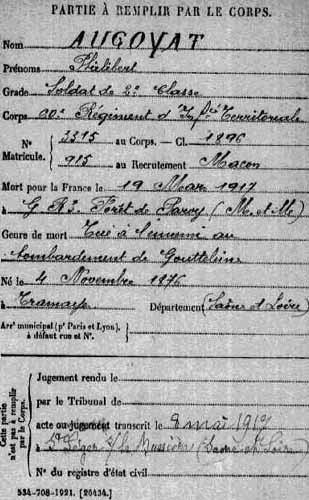 PARTIE À REMPLIR PAR LE CORPS.
Nom AUGOYAT
Prénoms Philibert
Grade Soldat de 2e Classe
Corps 60e Régiment d'Infie Territoriale
N° 3315 au Corps. — Cl. 1896
Matricule. 915 au Recrutement Macon
Mort pour la France le 19 Mars 1917
à G B 3 Forêt de Parroy (M. et M.)
Genre de mort Tué à l'ennemi au
bombardement de
Né le 4 Novembre 1876
à Tramayes Département (Saône et Loire)
Arr¹ municipal (p¹ Paris et Lyon),
à défaut rue et N°.
Cette partie
n'est pas à remplir
par le Corps.
Jugement rendu le
par le Tribunal de
acte ou jugement transcrit le 8 mai 1917
à St Léger s/ la Bussière (Saône et Loire)
N° du registre d'état civil
534-708-1921. [26434.]